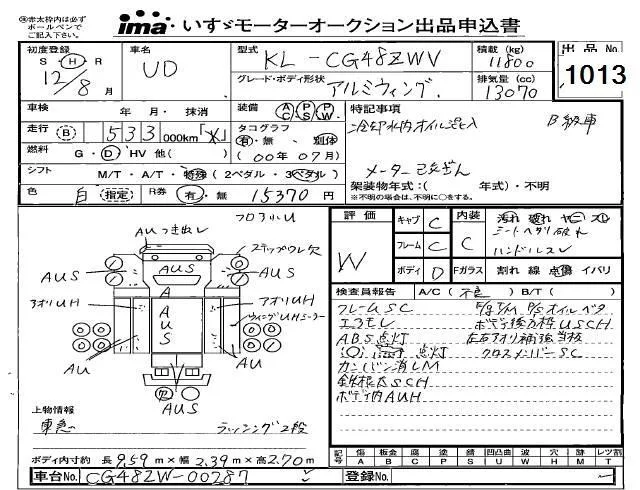 ※赤太枠内は必ず
ボールペンで
ご記入下さい。
ima いすゞモーターオークション出品申込書
初度登録 車名 型式 KL-CG48ZWV 積載 (kg) 11800 出品 No. 1013
S H R UD グレード・ボディ形状 アルミウィング 排気量 (cc) 13070
12/8月
車検 年 月・抹消 装備 A/C P/S P/W 特記事項
走行 B 533 000km タコグラフ 有・無 別体 冷却水内オイル混入 B級車
燃料 G・D・HV 他( ) (00年07月)
シフト M/T・A/T・特殊 (2ペダル・3ペダル) メーター
色 白 指定 R券 有・無 15370 円 架装物年式:( 年式)・不明
※不明の場合は、不明に○をする。
フロアUU
AU つき出し
ステップワレ欠
AUS AUS AUS
アオリUH A アオリUH
U
S
AU AU
AUS
上物情報
東急 ラッシング2段
ボディ内寸約 長 9.59 m×幅 2.39 m×高 2.70 m
車台No. CG48ZW-00287 登録No.
評価 キャブ C 内装 汚れ 破れ ヤニ スレ
W フレーム C C シートヘタリ破れ
ハンドルスレ
ボディ D Fガラス 割れ 線 点傷 イバリ
検査員報告 A/C ( 不良 ) B/T ( )
フレームSC E/g T/M P/S オイルベタ
エアモレ ボデー後方枠USCH
ABS点灯 左右アオリ補強当板
点灯 クロスメンバーSC
カンバン消LM
鉄根太SCH
ボディ内AUH
記号 傷 A 板金 B 腐 C 塗 P 錆 S 凹凸曲 U 波 W 穴 H 跡 M レツ割 T